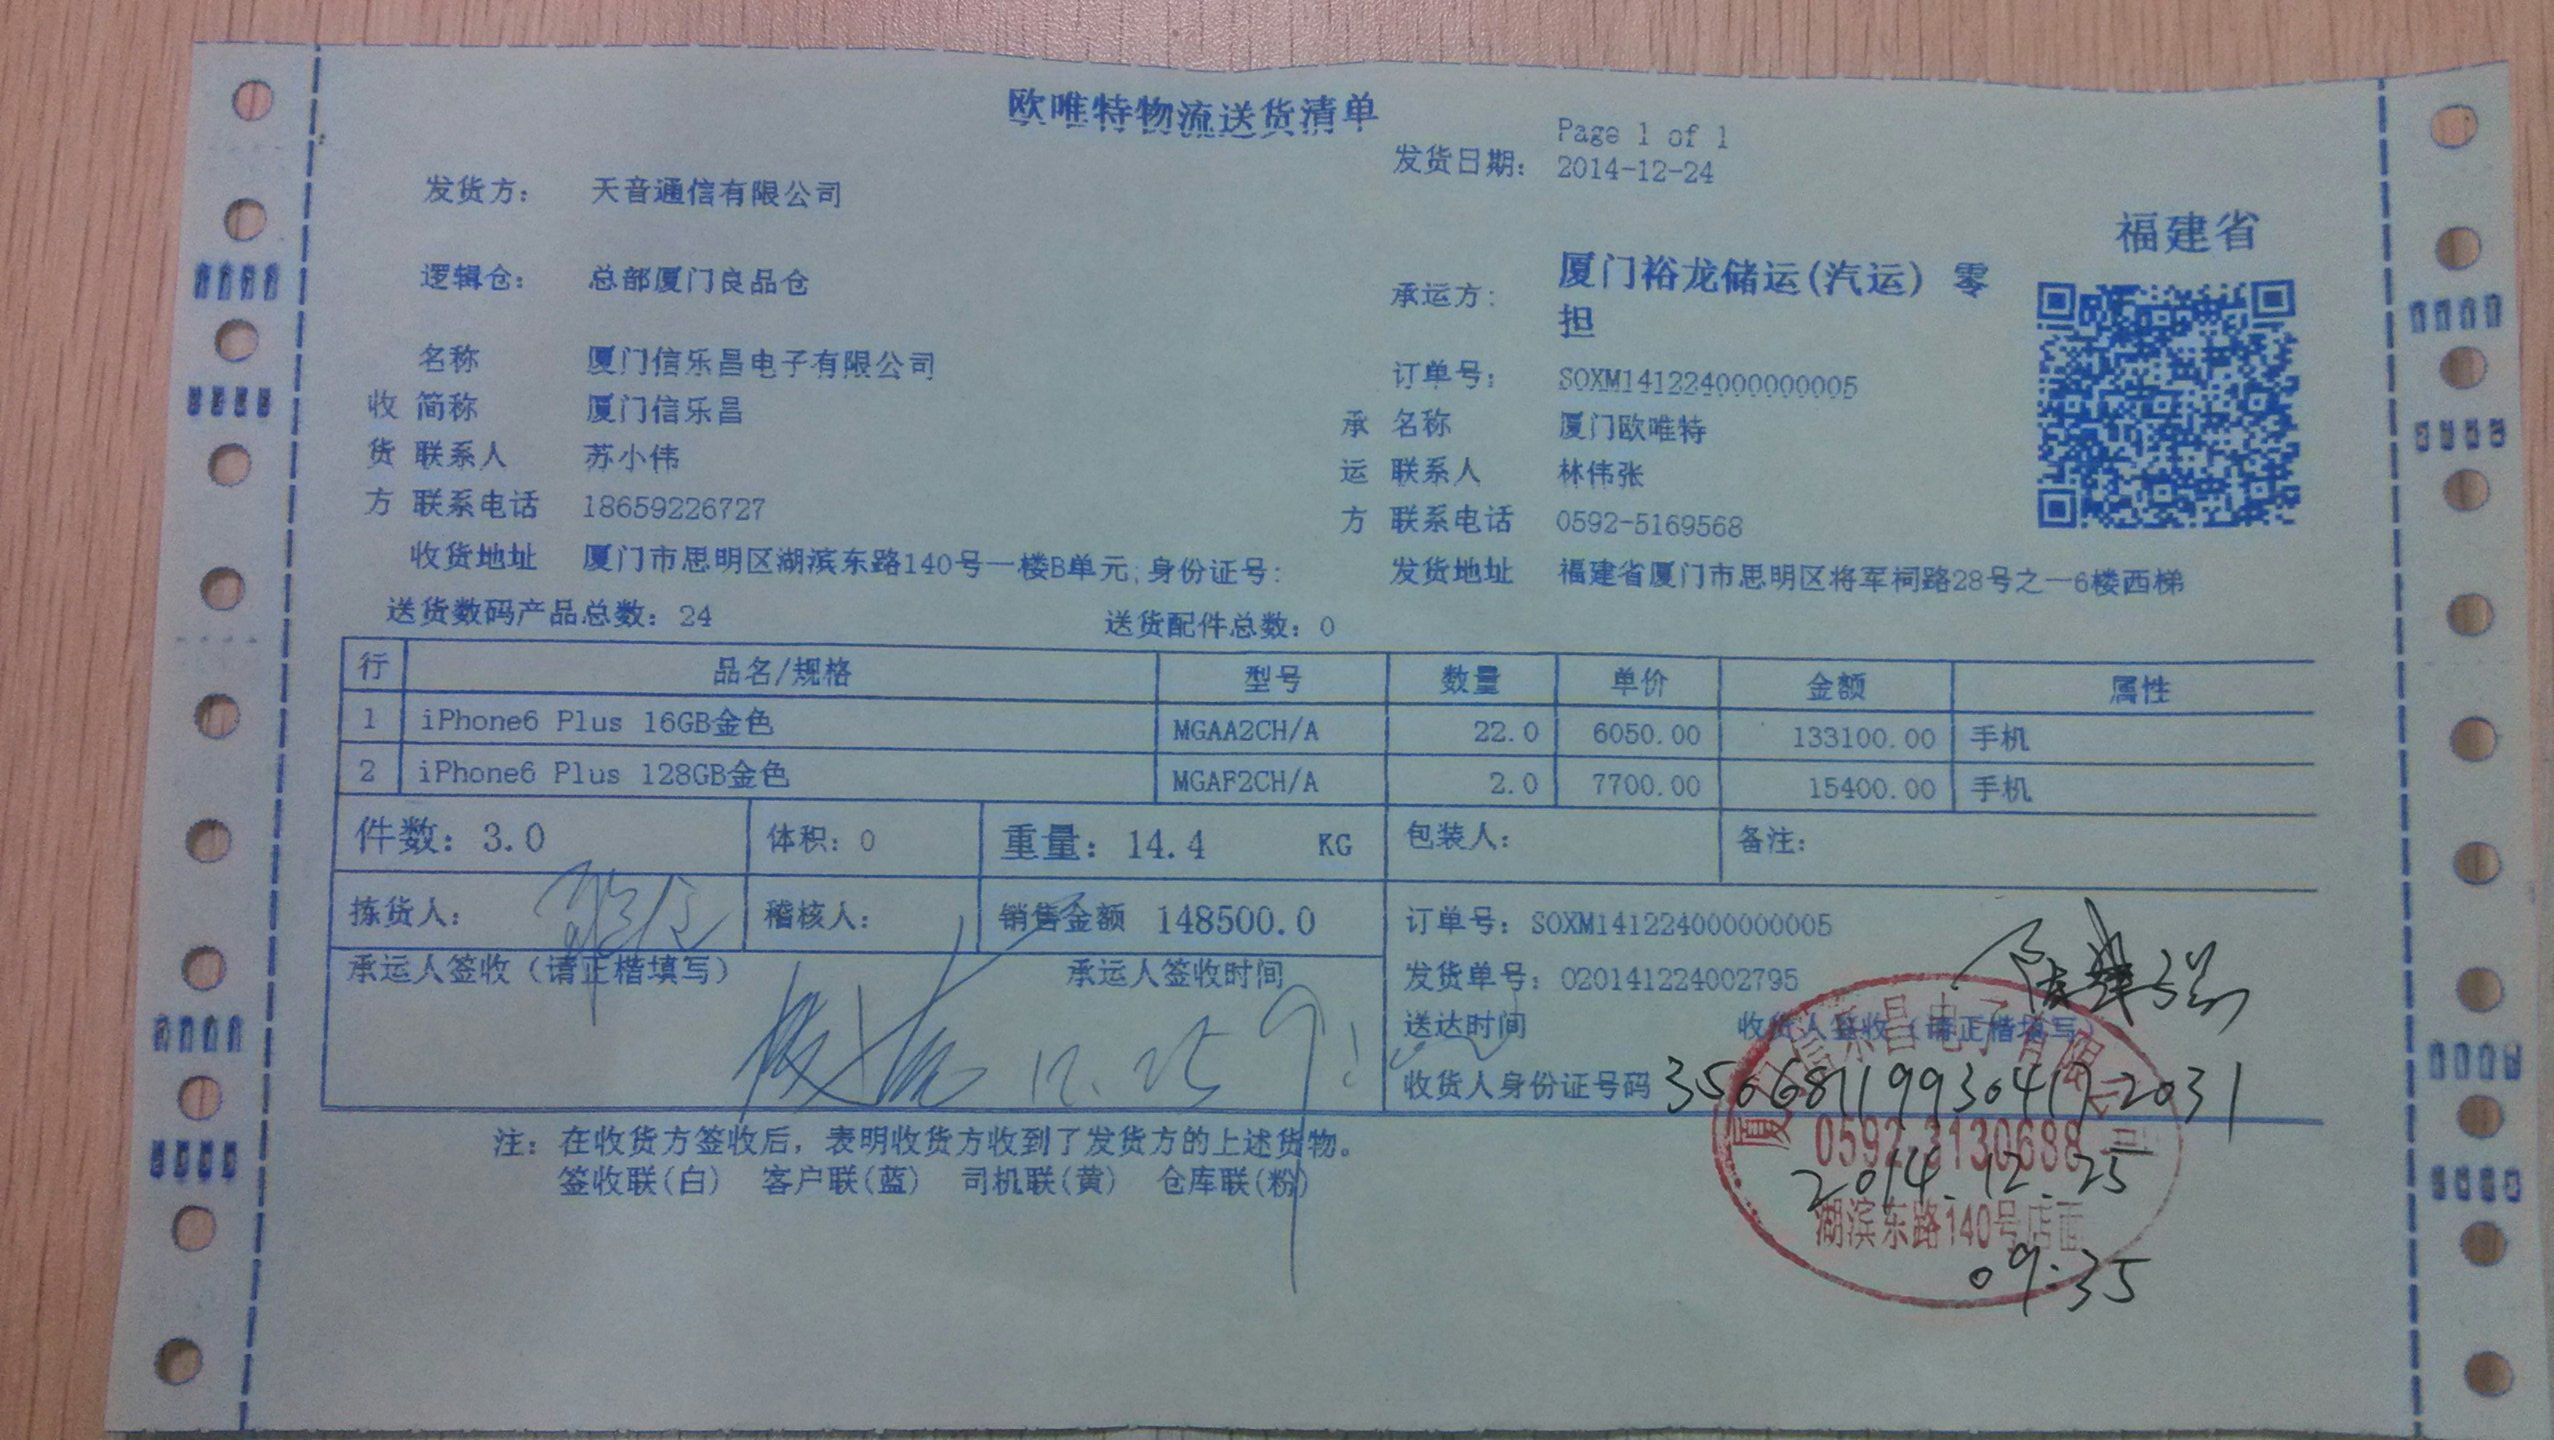 欧唯特物流送货清单
Page 1 of 1
发货日期: 2014-12-24
发货方: 天音通信有限公司
福建省
逻辑仓: 总部厦门良品仓
承运方: 厦门裕龙储运(汽运) 零
担
名称 厦门信乐昌电子有限公司
订单号: SOXM141224000000005
收 简称 厦门信乐昌
承 名称 厦门欧唯特
货 联系人 苏小伟
运 联系人 林伟张
方 联系电话 18659226727
方 联系电话 0592-5169568
收货地址 厦门市思明区湖滨东路140号一楼B单元;身份证号:
发货地址 福建省厦门市思明区将军祠路28号之一6楼西梯
送货数码产品总数: 24 送货配件总数: 0
行 品名/规格 型号 数量 单价 金额 属性
1 iPhone6 Plus 16GB金色 MGAA2CH/A 22.0 6050.00 133100.00 手机
2 iPhone6 Plus 128GB金色 MGAF2CH/A 2.0 7700.00 15400.00 手机
件数: 3.0 体积: 0 重量: 14.4 KG 包装人: 备注:
拣货人: 稽核人: 销售金额 148500.0 订单号: SOXM141224000000005
承运人签收(请正楷填写) 承运人签收时间
发货单号: 020141224002795
送达时间 收货人签收(请正楷填写)
12.25
收货人身份证号码
注: 在收货方签收后, 表明收货方收到了发货方的上述货物。
签收联(白) 客户联(蓝) 司机联(黄) 仓库联(粉)
0592-3130688
2014.12.25
湖滨东路140号店面
09:35